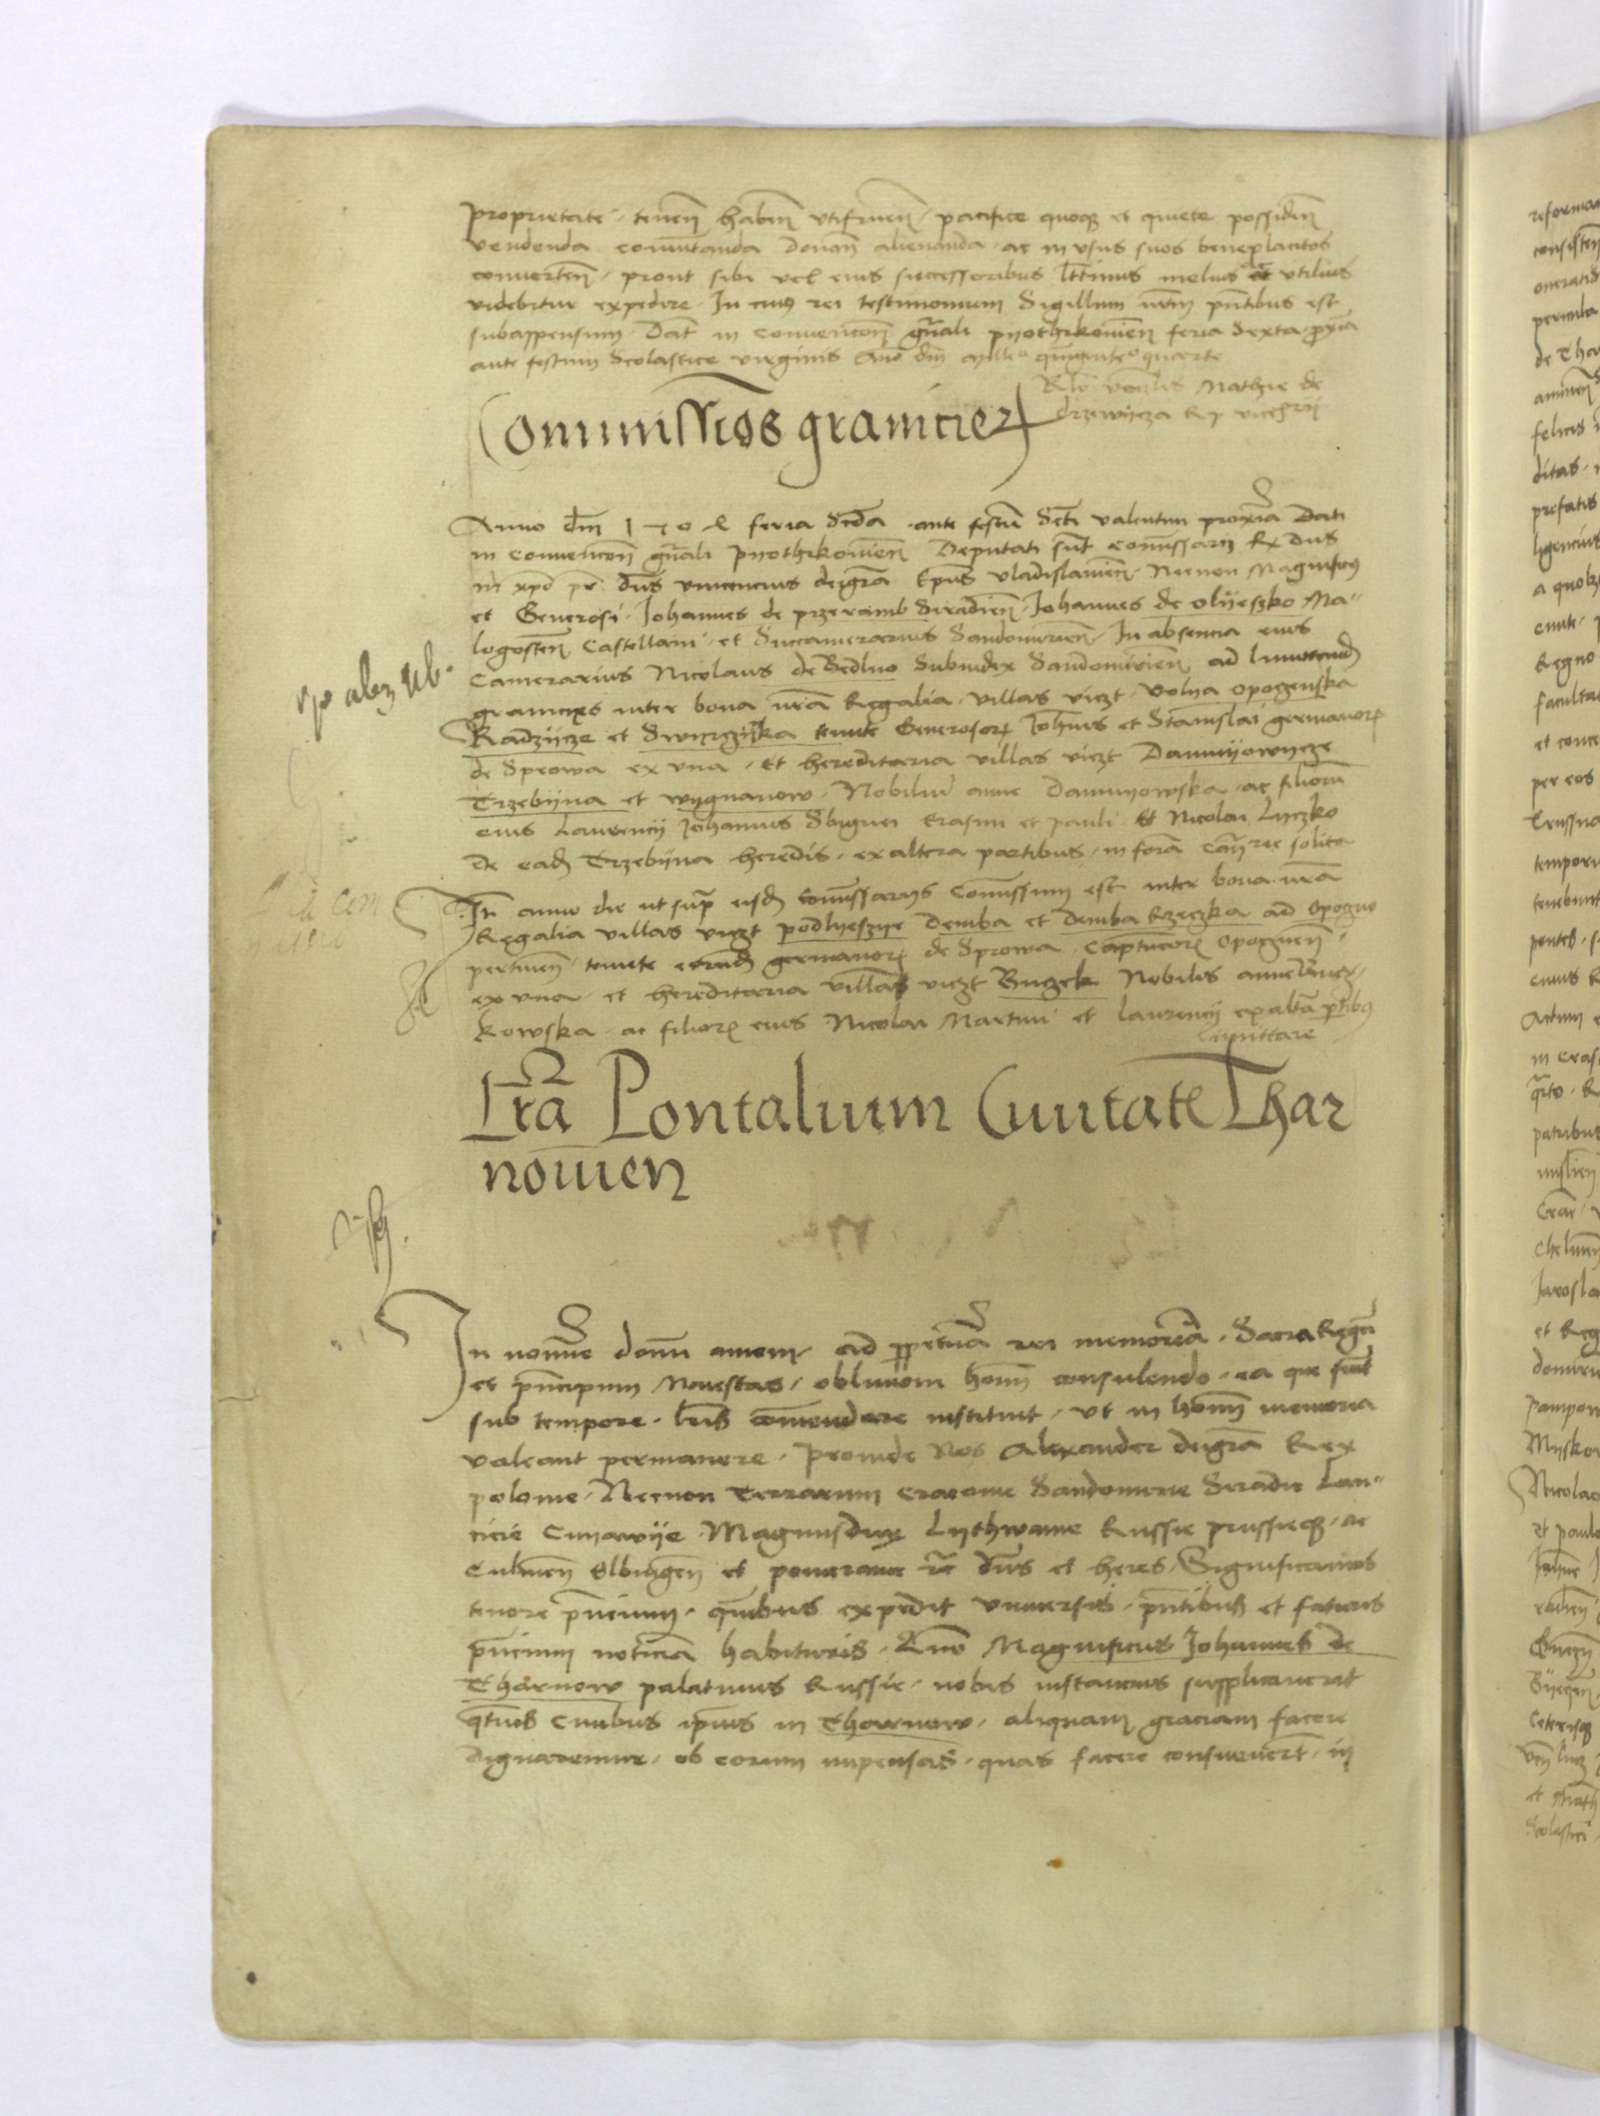 proprietate tenen haben utifruen pacifice quoque et quiete possiden
vendenda comutanda donan alienanda ac in usus suos beneplacitos
converten prout sibi vel eius successoribus lttimis melius et utilius
videbitur expedire. In cuius rei testimonium Sigillum nrm pntibus est
subappensum. Dat in convencon gnali pyothrkovien feria sexta pxia
ante festum Scolastice virginis Anno dni millo quingenteo quarto
Rlo venlis Mathie de
drzewycza R p vicecrij
Comissios granicier
Anno dni 1504 feria scda ante festu Scti valentini proxima Dati
in convencon gnali pyothrkovien Deputati sut comissarii Rx dus
in xpo pr dns vincencius dei gra Epus vladislavien Necnon Magnificus
et Generosi Johannes de przeramb Siradien Johannes de Olyeszko Ma-
logosten Castellani et Succamerarius Sandomirien In absencia eius
Camerarius Nicolaus de Bedlno Subiudex Sandomirien ad limitand
granicies inter bona nra Regalia villas viczt Volya opogenska
Radzycze et tenute Generosor Johnis et Stanislai germanor
de Sprowa ex una Et hereditaria villas viczt Damuyowycze
Trzebyna et wygnanow Nobiliu anne Damuyowska ac filioru
eius Laurencii Johannis Sbignei Erasmi et Pauli Et Nicolai Lyczko
de ead Trzebyna heredis ex altera partibus in fora solita
It anno die ut sup eisd comissariis Comissum est inter bona nra
Regalia villas viczt podlyeszye demba et demba Rzeczka ad Opogno
pertinen tenute eorund germanor de Sprowa Capitaneor Opognen
ex una et hereditaria villas viczt Buczek Nobilis anne Bucz-
kowska ac filior eius Nicolai Martini et laurencii ex alta ptibus
limittare
Lra Pontalium Civitate Thar
novien
In nomine domi amen ad ppetua rei memoria Sacra Regu
et pncipum Maiestas oblivioni homi consulendo ea que sunt
sub tempore lris comendare instituit ut in homi memoria
valeant permanere Proinde Nos Alexander dei gra Rex
polonie Necnon Terrarum Cracovie Sandomirie Siradie Lan-
cicie Cuyawye Magnusdux Lythwanie Russie prussieque ac
Culmen Elbingen et pomeranie rc dns et heres Significamus
tenore pncium quibus expedit universis pntibus et futuris
pncium noticia habituris Quo Magnificus Johannes de
Tharnow palatinus Russie nobis instancius supplicaverit
qtnus Civibus ipius in Tharnow aliquam graciam facere
dignaremur ob eorum impensas quas facere consueverut in